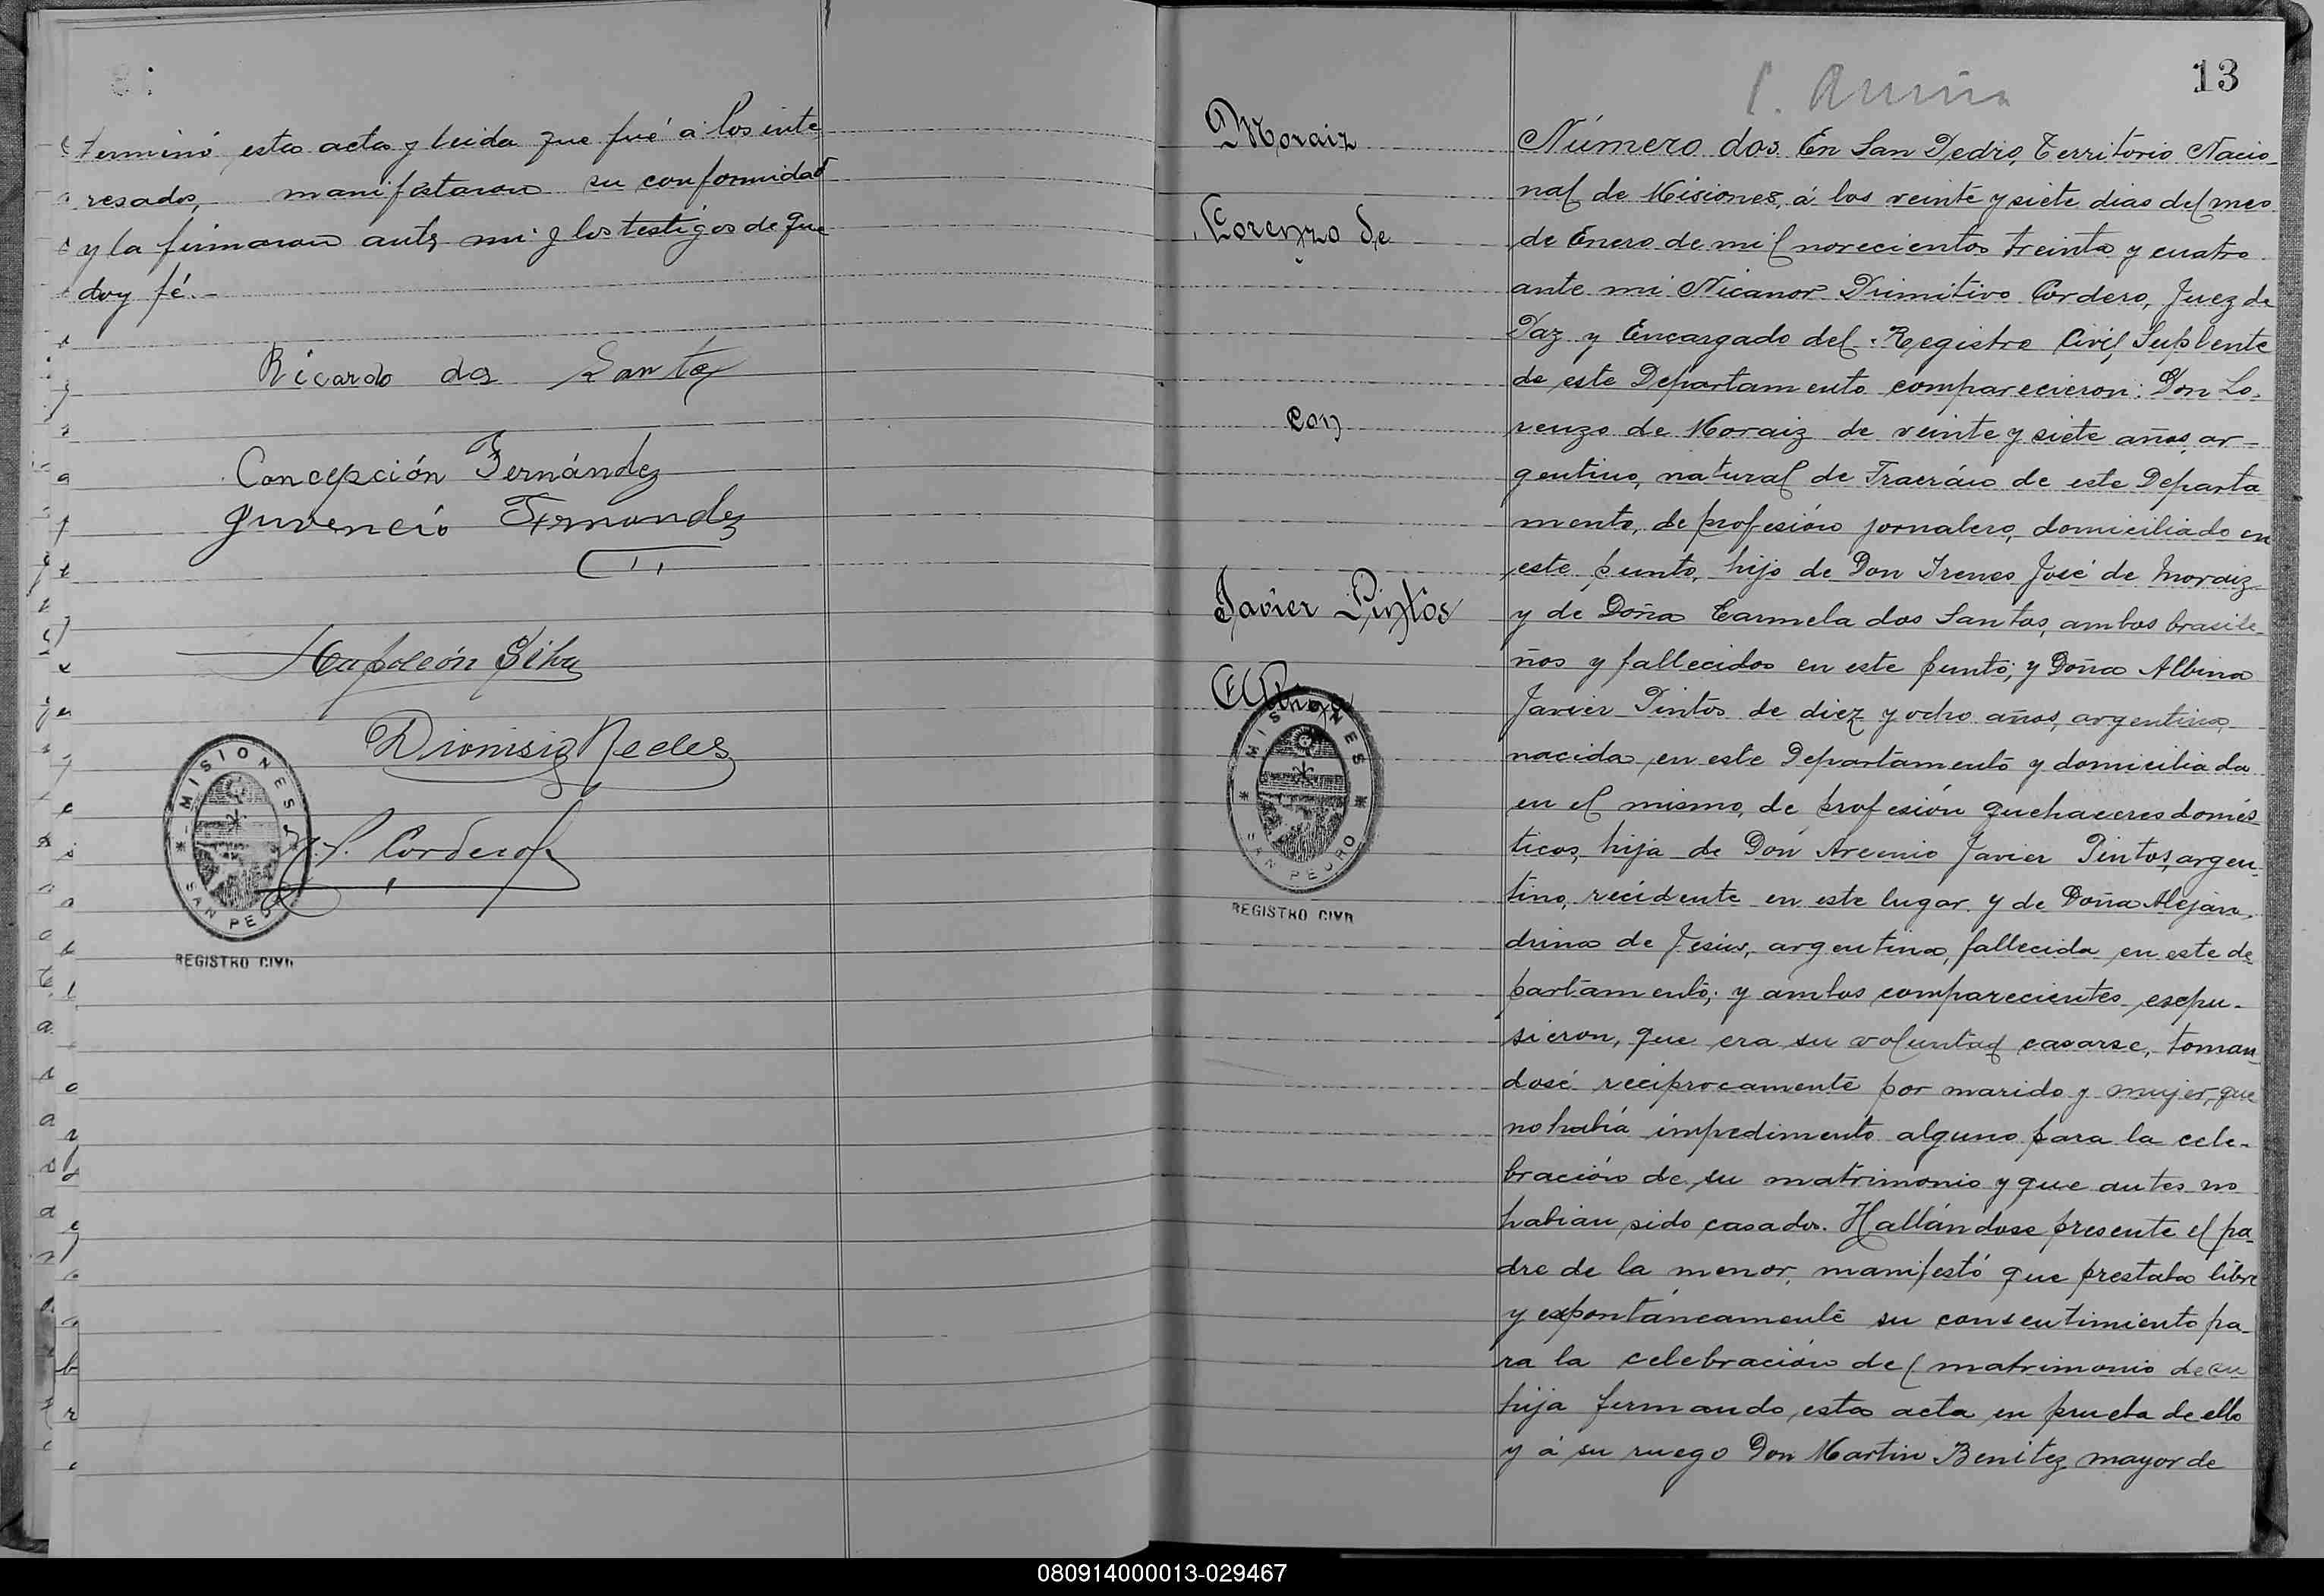 terminó esta acta y leida que fué á los inte
resados, manifestaron su conformidad
y la firmaron ante mi y los testigos de que
doy fé.—
Ricardo dos Santos
Concepción Fernández
Juvencio Fernandez
Napoleón Silva
Dionisio
MISIONES
SAN PEDRO
N. P. Cordero
REGISTRO CIVIL
13
Moraiz
Lorenzo de
con
Javier Pintos
Albina
MISIONES
SAN PEDRO
REGISTRO CIVIL
Número dos. En San Pedro, Territorio Nacio-
nal de Misiones, á los veinte y siete dias del mes
de Enero de mil novecientos treinta y cuatro
ante mi Nicanor Primitivo Cordero, Juez de
Paz y Encargado del Registro Civil Suplente
de este Departamento comparecieron: Don Lo-
renzo de Moraiz de veinte y siete años, ar-
gentino, natural de Fracrán de este Departa
mento, de profesión jornalero, domiciliado en
este punto, hijo de Don Ireneo José de Moraiz
y de Doña Carmela dos Santos, ambos brasile-
ños y fallecidos en este punto; y Doña Albina
Javier Pintos de diez y ocho años, argentina,
nacida en este Departamento y domiciliada
en el mismo, de profesión quehaceres domés-
ticos, hija de Don Arcenio Javier Pintos, argen-
tino, recidente en este lugar y de Doña Alejan-
drina de Jesús, argentina, fallecida en este de-
partamento; y ambos comparecientes expu-
sieron, que era su voluntad casarse, toman-
dosé reciprocamente por marido y mujer, que
no había impedimento alguno para la cele-
bración de su matrimonio y que antes no
habian sido casados. Hallándose presente el pa-
dre de la menor, manifestó que prestaba libre
y expontáneamente su consentimiento pa-
ra la celebración del matrimonio de su
hija firmando esta acta en prueba de ello
y á su ruego Don Martin Benitez mayor de
080914000013-029467